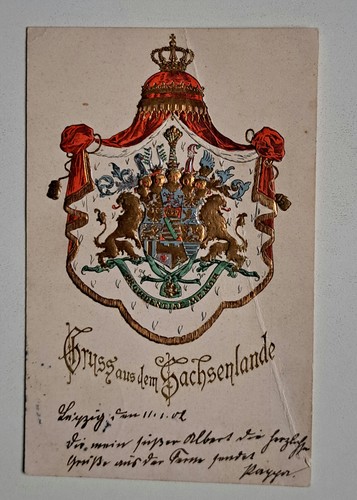 PROVIDENTIAE MEMOR
Gruss aus dem Sachsenlande
Leipzig, den 11.1.02
Dir mein süßer Albert die herzlichsten
Grüße aus der Ferne sendet
Pappa.